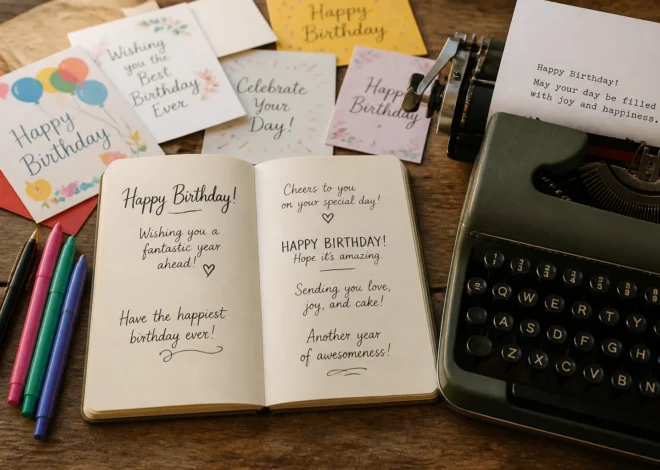 Happy
Birthday
Wishing
you the
Best
Birthday
Ever
Happy
Birthday
Celebrate
Your
Day!
Happy
Birthday
Happy Birthday!
May your day be filled
with joy and happiness.
Happy Birthday!
Wishing you a
fantastic year
ahead!
Have the happiest
birthday ever!
Cheers to you
on your special day!
HAPPY BIRTHDAY!
Hope it's amazing.
Sending you love,
joy, and cake!
Another year
of awesomeness!
Q W E R T Y
A S D F G H
Z X C V B N